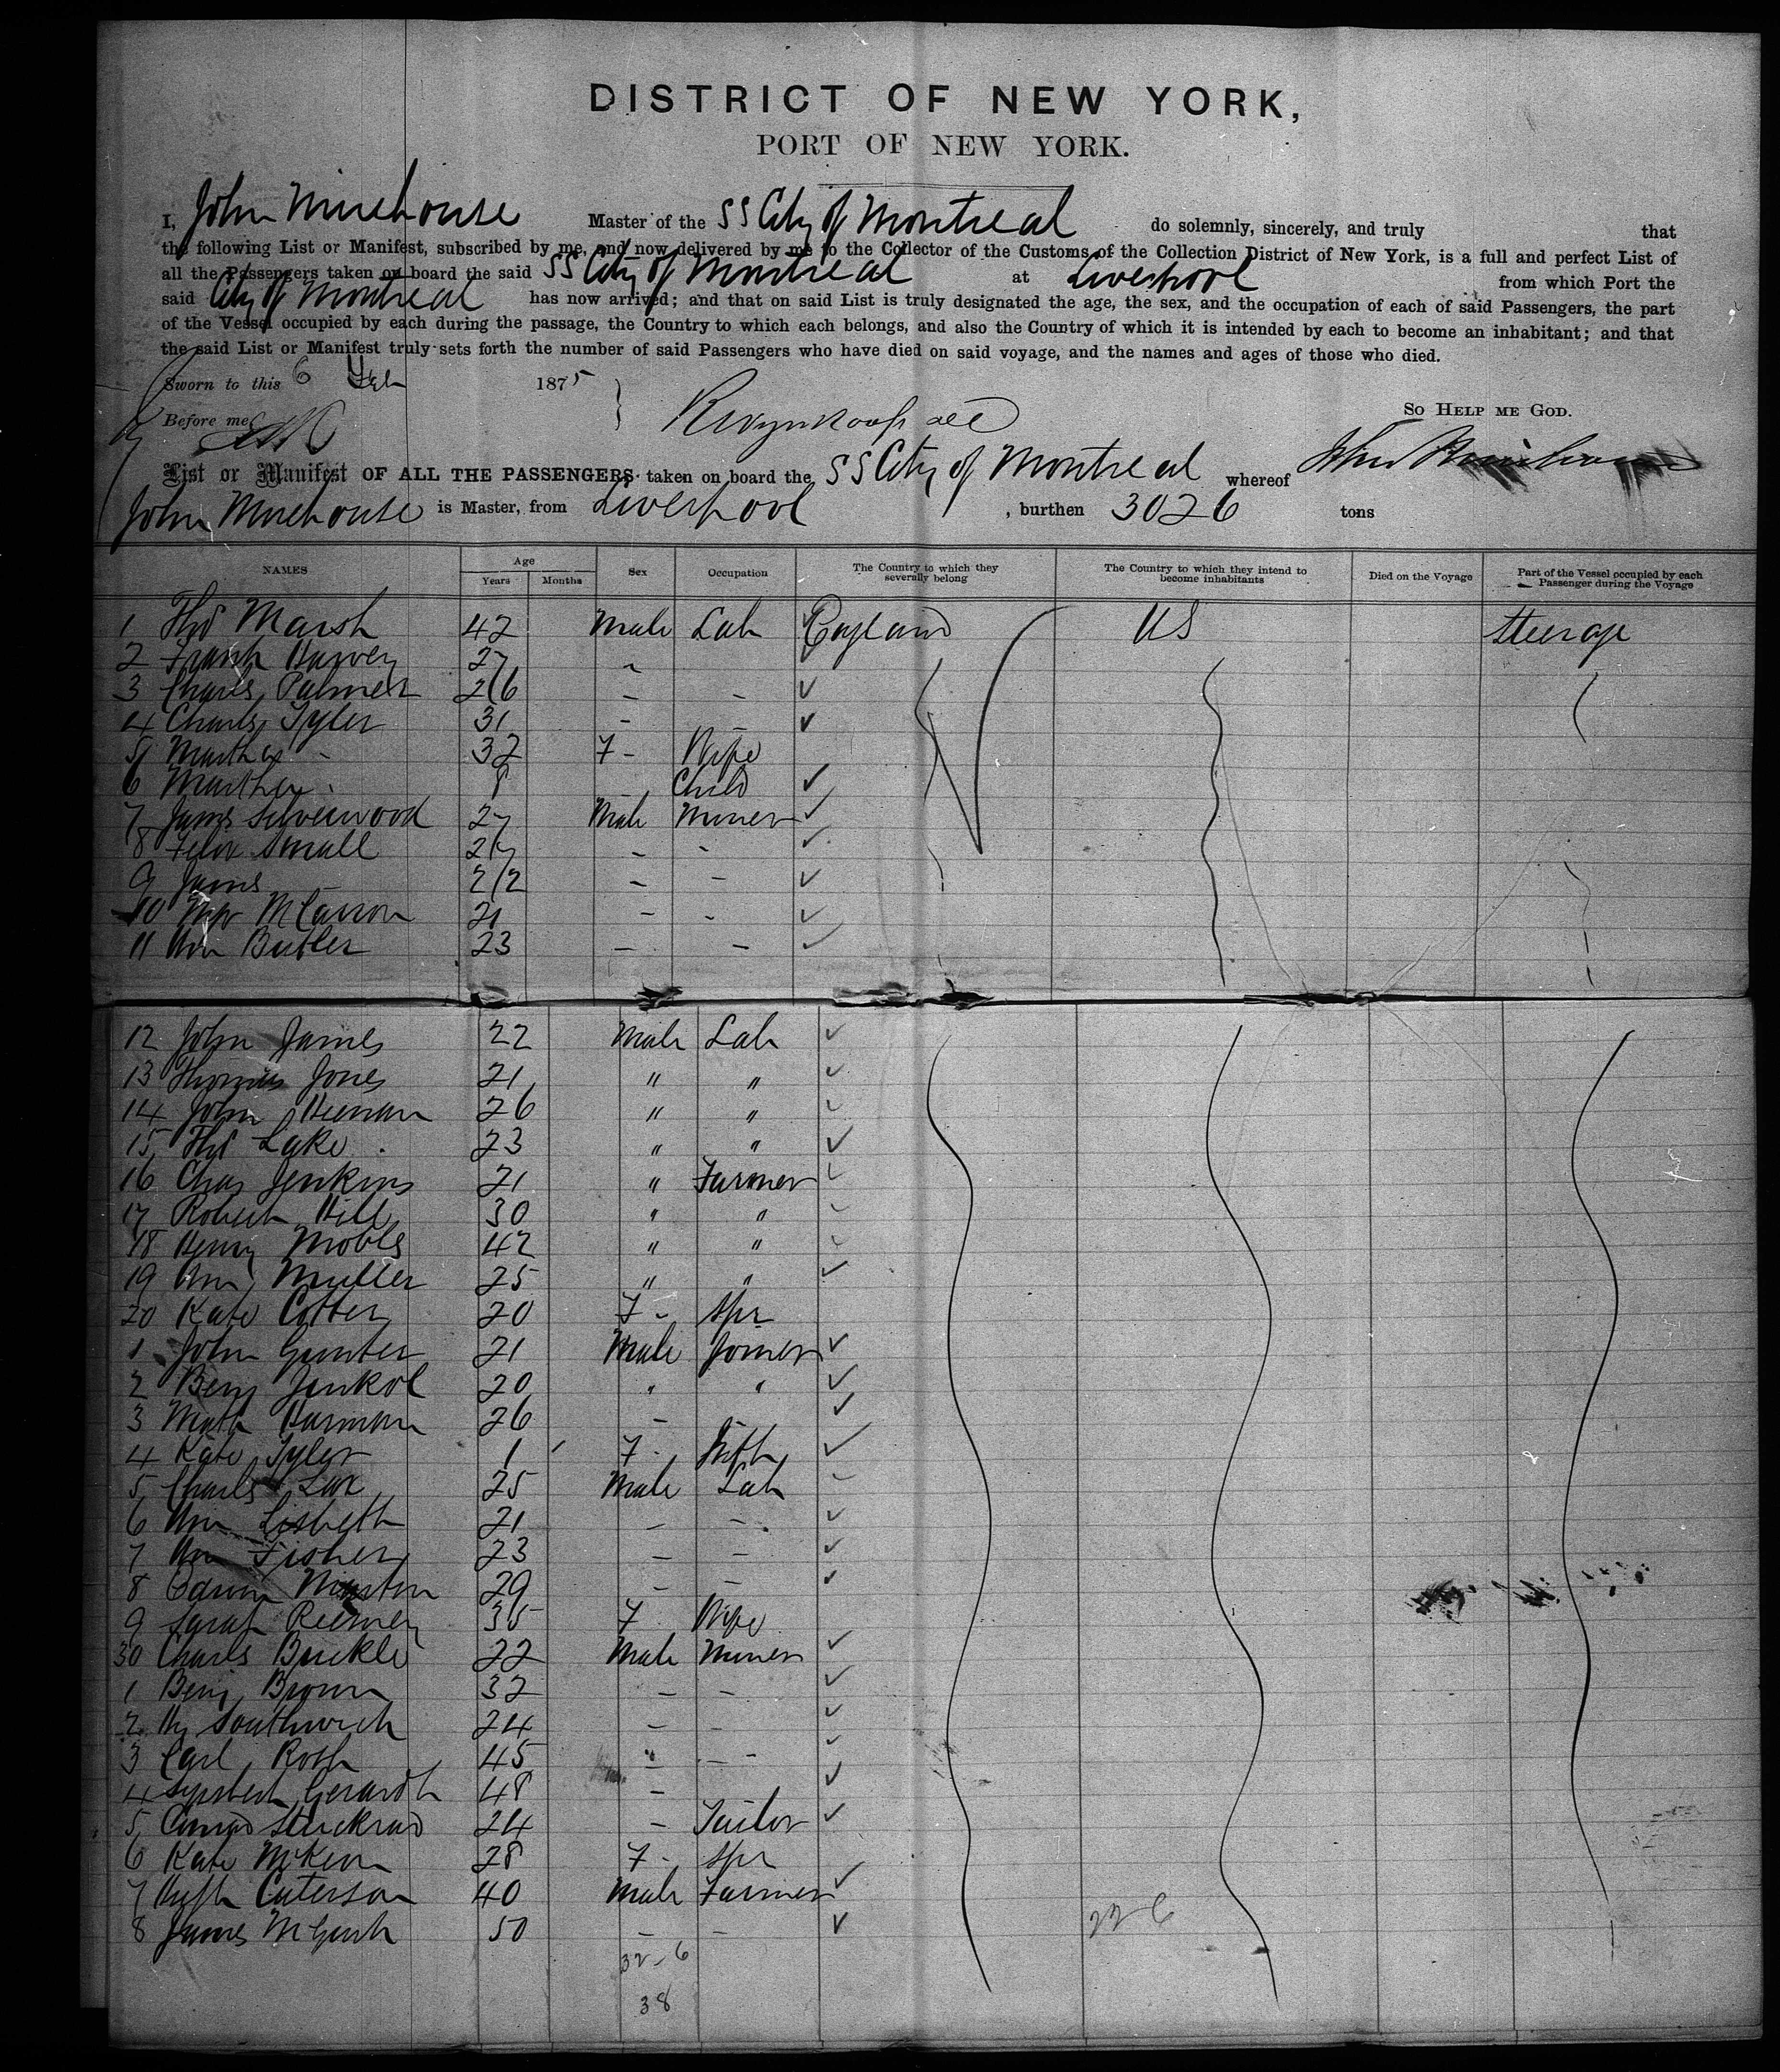 DISTRICT OF NEW YORK,
PORT OF NEW YORK.
I, John Mirehouse Master of the SS City of Montreal do solemnly, sincerely, and truly that
the following List or Manifest, subscribed by me, and now delivered by me to the Collector of the Customs of the Collection District of New York, is a full and perfect List of
all the Passengers taken on board the said SS City of Montreal at Liverpool from which Port the
said City of Montreal has now arrived; and that on said List is truly designated the age, the sex, and the occupation of each of said Passengers, the part
of the Vessel occupied by each during the passage, the Country to which each belongs, and also the Country of which it is intended by each to become an inhabitant; and that
the said List or Manifest truly sets forth the number of said Passengers who have died on said voyage, and the names and ages of those who died.
Sworn to this 6 Feb 1875
So HELP ME GOD.
Before me
List or Manifest OF ALL THE PASSENGERS taken on board the SS City of Montreal whereof
John Mirehouse is Master, from Liverpool , burthen 3026 tons
NAMES Age Years Months Sex Occupation The Country to which they severally belong The Country to which they intend to become inhabitants Died on the Voyage Part of the Vessel occupied by each Passenger during the Voyage
1 Thos Marsh 42 Male Lab England US Steerage
2 Frank Harvey 27 -
3 Charles Palmer 26 - -
4 Charls Tyler 31 - -
5 Martha - 32 F - Wife
6 Martha - 8 Child
7 James Silverwood 27 Male Miner
8 Felix Small 27 - -
9 James 22 - -
10 McCarron 21 - -
11 Wm Butler 23 - -
12 John James 22 Male Lab
13 Thomas Jones 21 " "
14 John Heenan 26 " "
15 Thos Lake 23 " "
16 Chas Jenkins 21 " Farmer
17 Robert Hill 30 " "
18 Henry Mobls 42 " "
19 Wm Muller 25 " "
20 Kate Cotter 20 F - Spr
1 John Gunter 21 Male Joiner
2 Benj 20 " "
3 Math Harman 26 -
4 Kate Tyler 1 F - Infth
5 Charls Lax 25 Male Lab
6 Wm Lisbeth 21 - -
7 Wm Fisher 23 - -
8 Edwin 29 - -
9 Sarah 35 F Wife
30 Charls Buckle 22 Male Miner
1 Benj Brown 32 - -
2 Hy Southwich 24 - -
3 Carl Roth 45 - -
4 Gerardh 48 -
5 24 - Tailor
6 Kate McKeon 28 F - Spr
7 Hugh Caterson 40 Male Farmer
8 James 50 - -
32-6
38